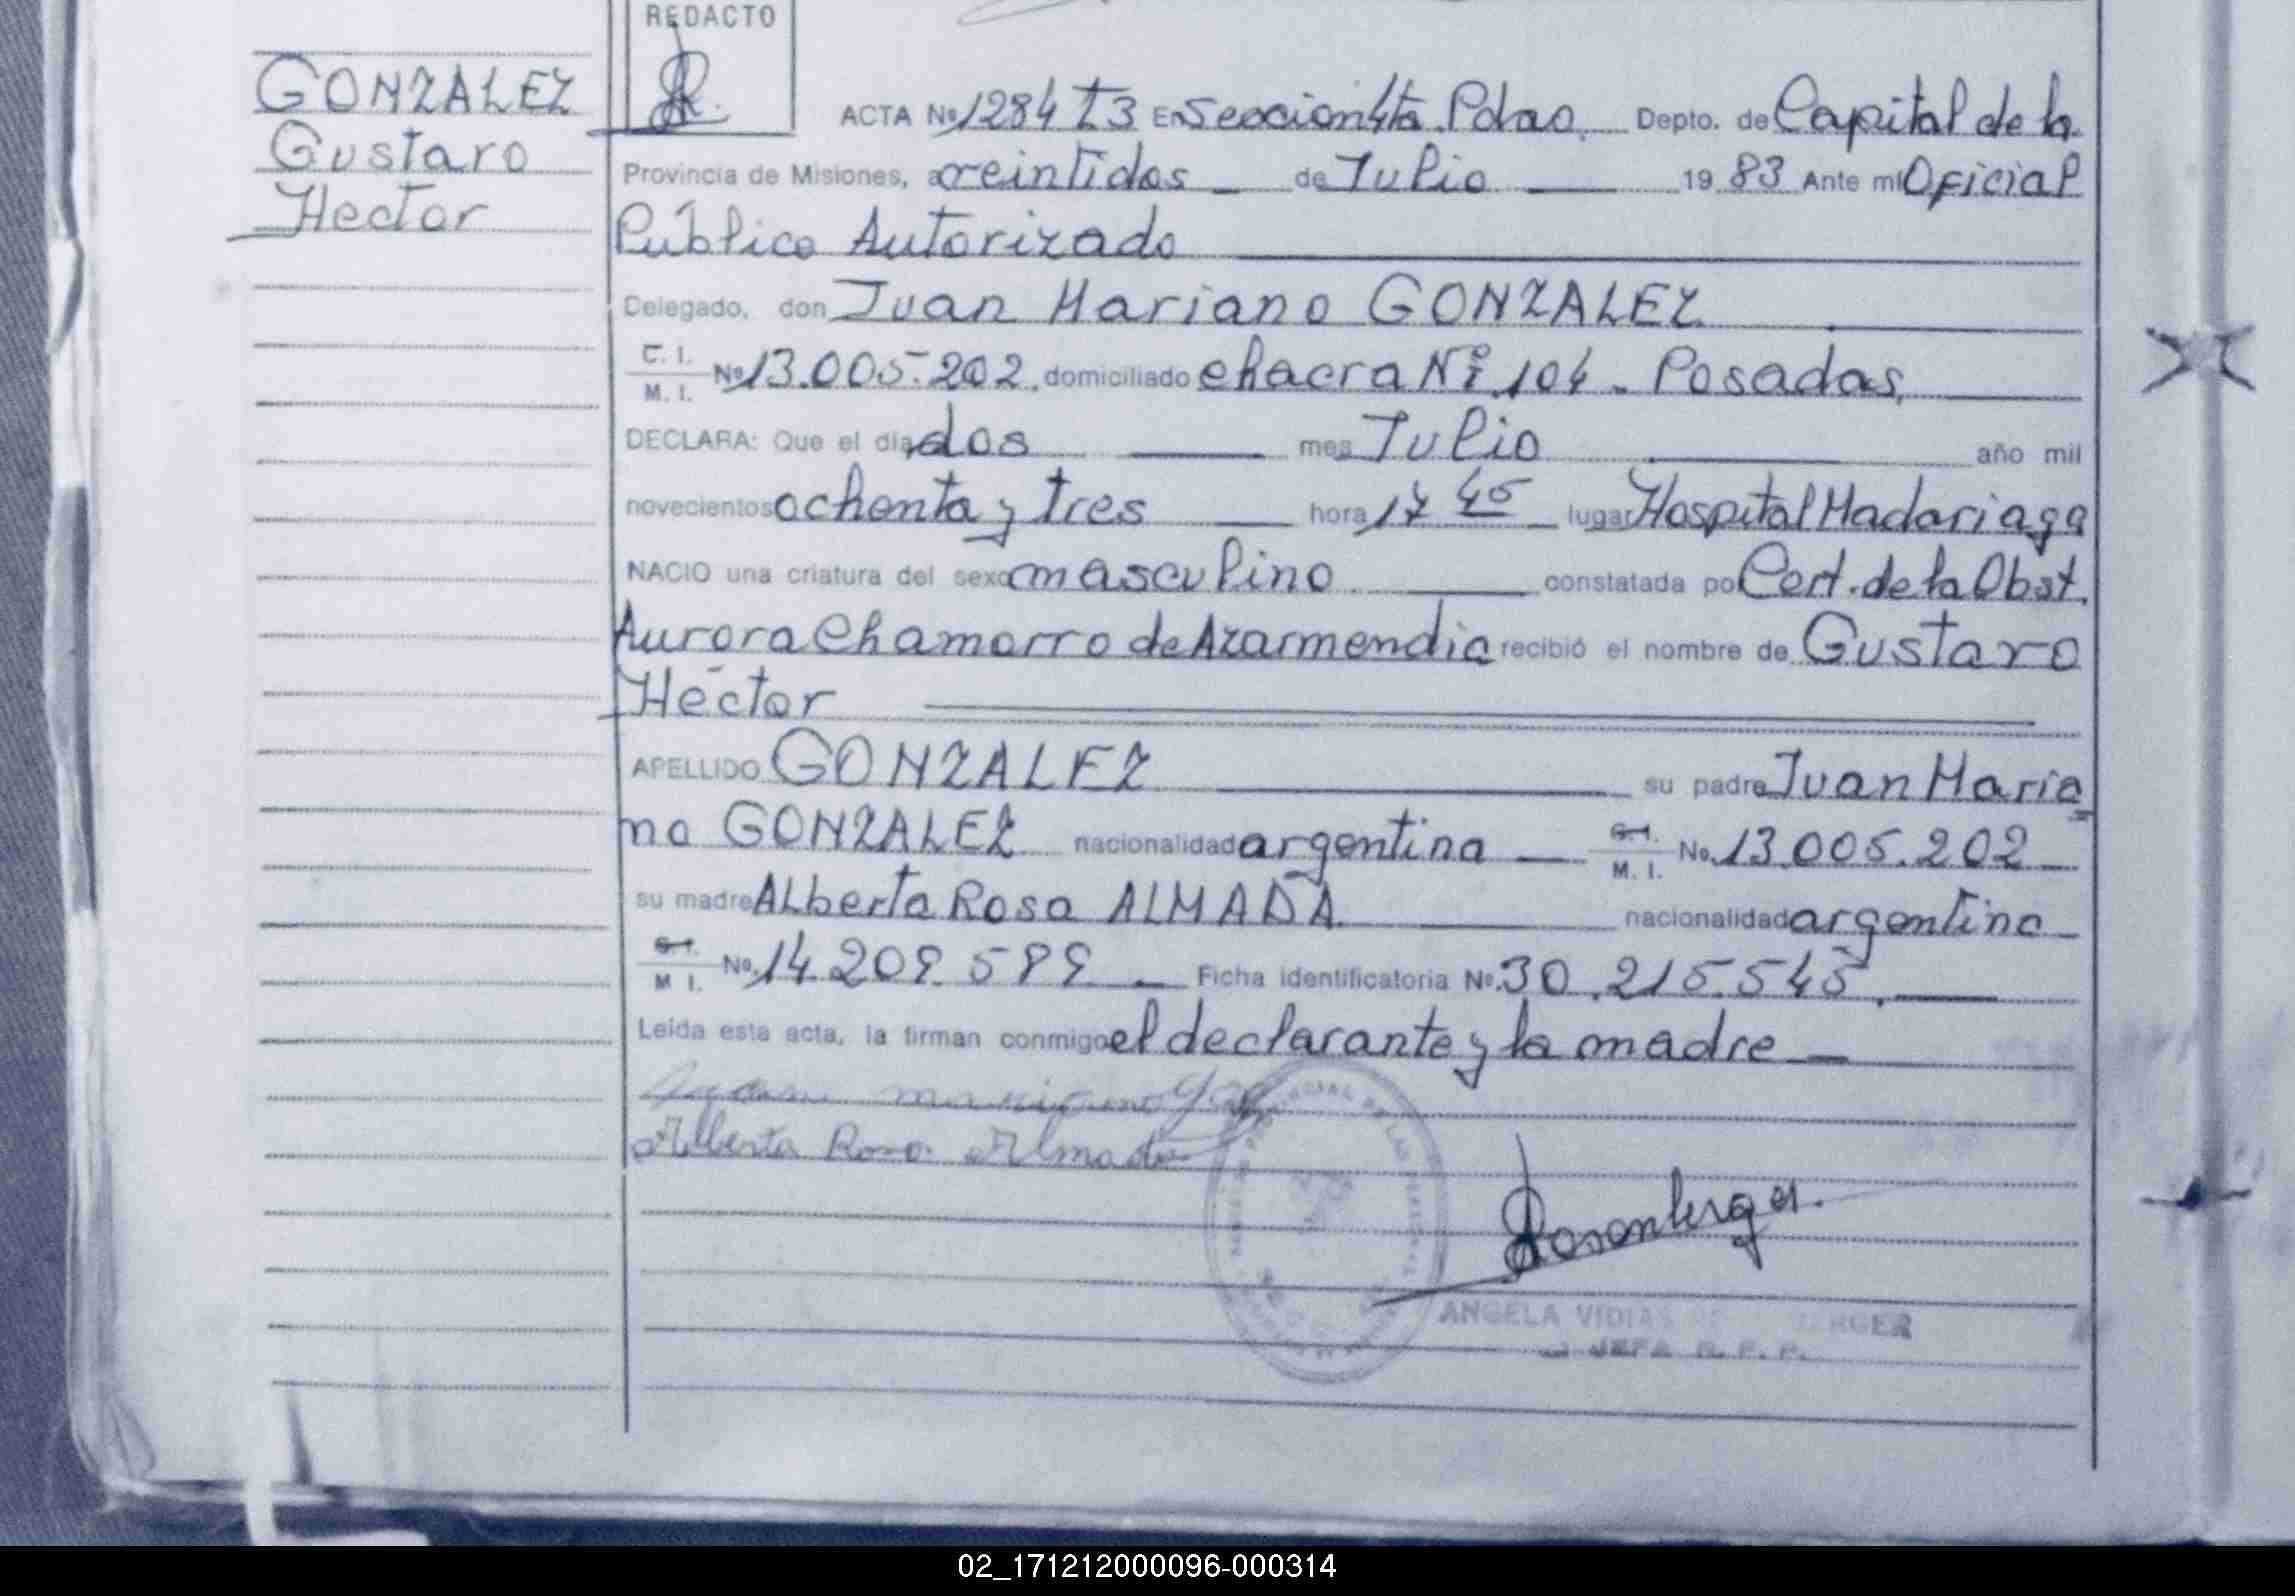 REDACTO
GONZALEZ
Gustavo
Hector
ACTA Nº 1284 T3 En Seccion 4ta. Pdas. Depto. de Capital de la
Provincia de Misiones, a veintidos de Julio 19 83 Ante mí Oficial
Público Autorizado
Delegado, don Juan Mariano GONZALEZ
C. I.
M. I. Nº 13.005.202. domiciliado chacra Nº 104 - Posadas,
DECLARA: Que el día dos mes Julio año mil
novecientos ochenta y tres hora 17 45 lugar Hospital Madariaga
NACIO una criatura del sexo masculino constatada por Cert. de la Obst.
Aurora Chamorro de Azarmendia recibió el nombre de Gustavo
Héctor
APELLIDO GONZALEZ su padre Juan Maria
no GONZALEZ nacionalidad argentina C. I. M. I. No. 13.005.202
su madre Alberta Rosa ALMADA nacionalidad argentina
C. I. M I. Nº. 14.209.589 Ficha identificatoria Nº. 30.215.545.
Leída esta acta, la firman conmigo el declarante y la madre
Juan mariano
Alberta Rosa Almada
Rosenberger
ANGELA VIDIAS DE
JEFA R. P. P.
02_171212000096-000314